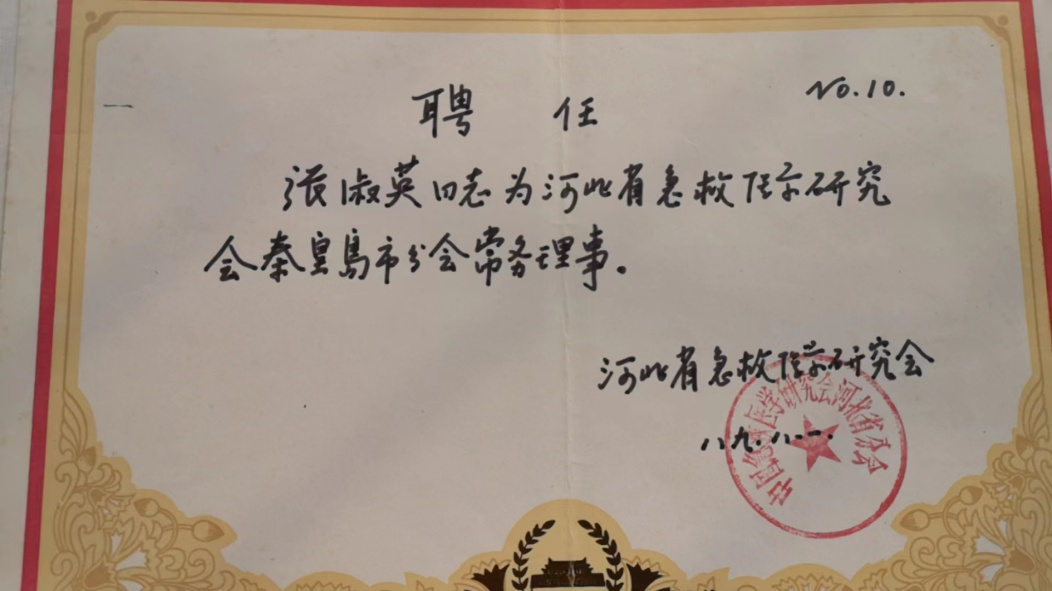 No.10.
聘 任
张淑英同志为河北省急救医学研究
会秦皇岛市分会常务理事。
河北省急救医学研究会
八九.八.一.
中国急救医学研究会河北省分会